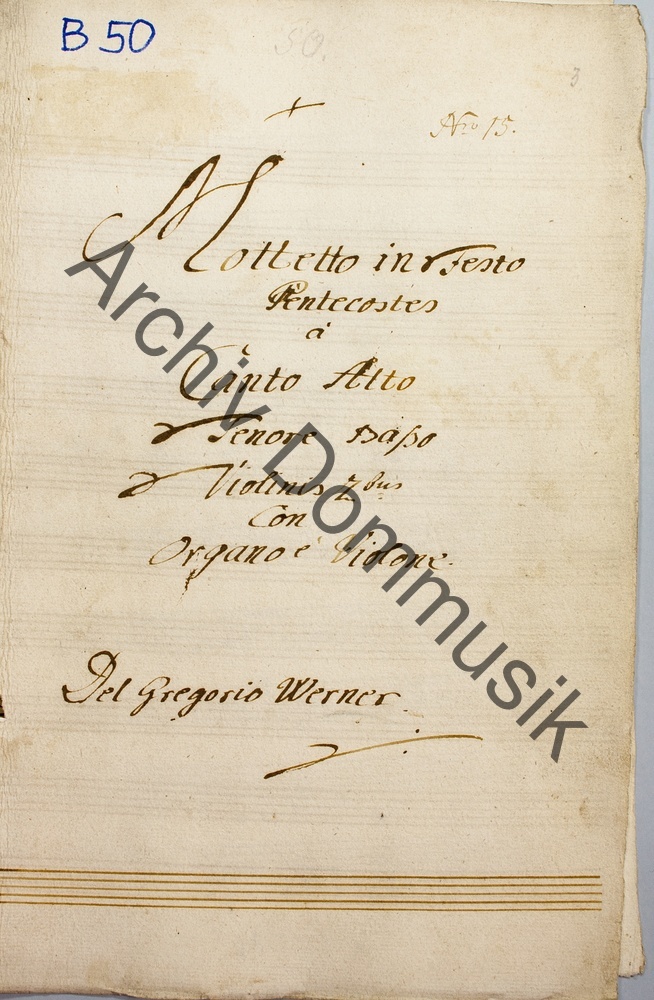 B 50
50.
3
Nro 15.
Mottetto in Festo
Pentecostes
à
Canto Alto
Tenore Baßo
Violinis 2bus
Con
Organo è Violone.
Del Gregorio Werner.
Archiv Dommusik